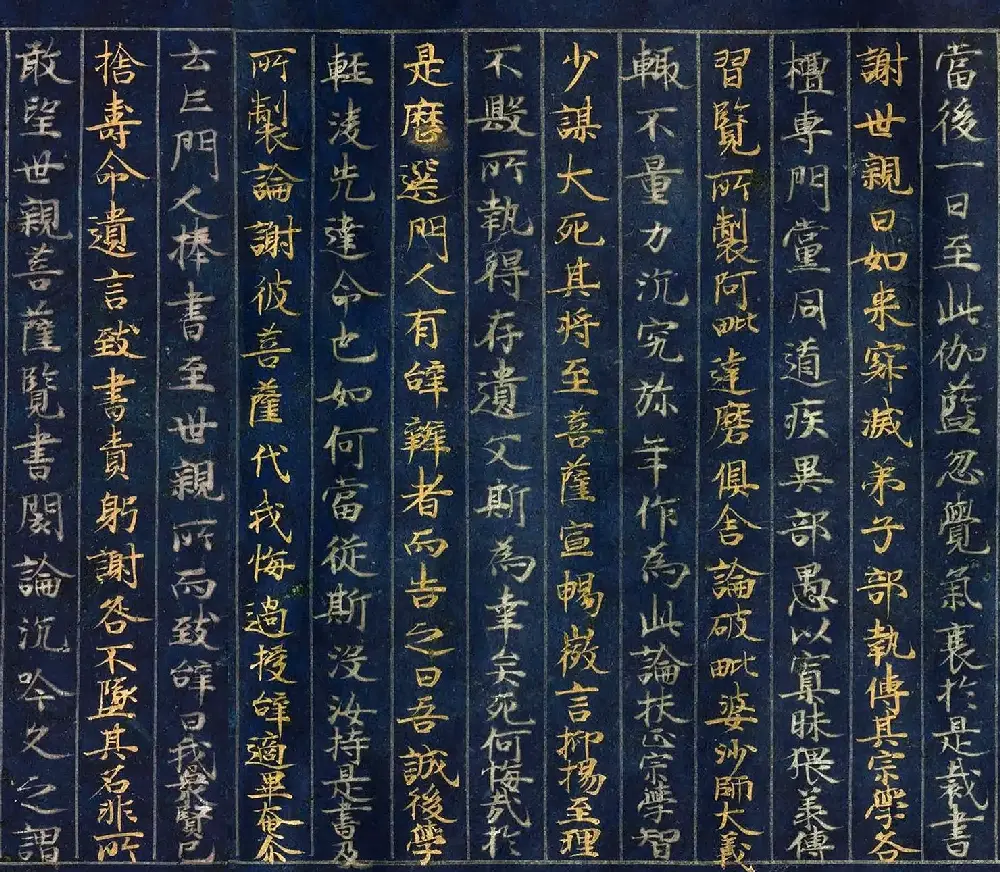 當後一日至此伽藍忽覺氣衰於是裁書
謝世親曰如来寂滅弟子部執傳其宗學各
擅專門黨同道疾異部愚以寡昧猥羕傳
習覽所製阿毗達磨俱舍論破毗婆沙師大義
輙不量力沉究弥年作為此論扶正宗學智
少謀大死其将至菩薩宣暢微言抑揚至理
不毀所執得存遺文斯為幸矣死何悔哉於
是磨選門人有辭辯者而告之曰吾誠後學
軽淩先達命也如何當從斯没汝持是書及
所製論謝彼菩薩代我悔過授辭適畢奄尒
云亡門人捧書至世親所而致辭曰我衆賢已
捨壽命遺言致書責躬謝咎不墜其名非所
敢望世親菩薩覽書閱論沉吟久之謂